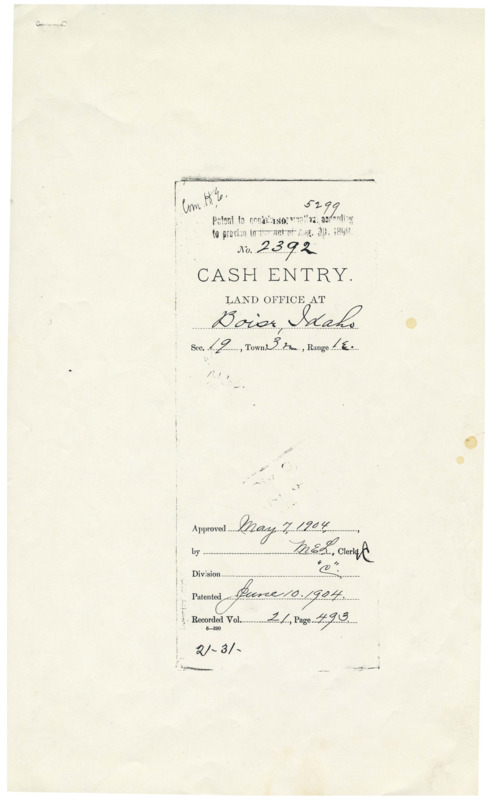 Com H.E.
5299
Patent to contain reservation according
to proviso to the act of Aug. 30, 1890.
No. 2392
CASH ENTRY.
LAND OFFICE AT
Boise, Idaho
Sec. 19, Town. 3 n, Range 1 E.
Approved May 7, 1904,
by M.E.L., Clerk
Division "C".
Patented June 10, 1904.
Recorded Vol. 21, Page 493.
21-31-